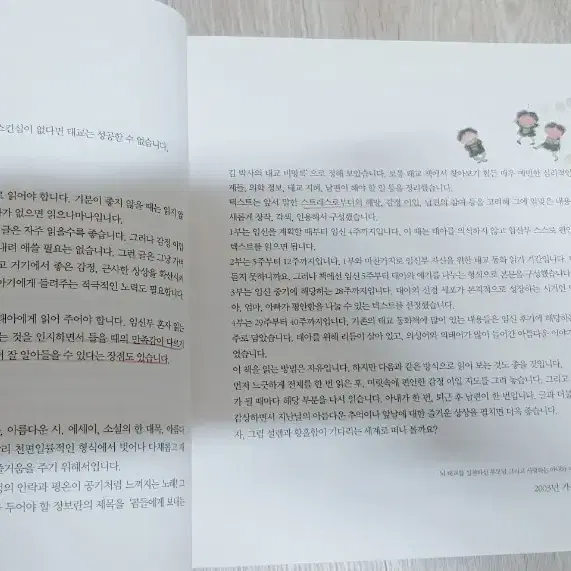 스칸십이 없다면 태교는 성공할 수 없습니다.
로 읽어야 합니다. 기분이 좋지 않을 때는 읽지 않
가 없으면 읽으나마나입니다.
글은 자주 읽을수록 좋습니다. 그러나 감정 이입
내려 애쓸 필요는 없습니다. 그런 글은 그냥 가벼
고 거기에서 좋은 감정, 근사한 상상을 확산시켜
아기에게 들려주는 적극적인 노력도 필요합니다.
태아에게 읽어 주어야 합니다. 임신부 혼자 읽는
는 것을 인지하면서 들을 때의 만족감이 다르
더 잘 알아들을 수 있다는 장점도 있습니다.
, 아름다운 시, 에세이, 소설의 한 대목, 아름다
리 천편일률적인 형식에서 벗어나 다채롭고 재
즐거움을 주기 위해서입니다.
의 안락과 평온이 공기처럼 느껴지는 노래고
두어야 할 정보란의 제목을 '꿈들에게 보내는
김 박사의 태교 비망록'으로 정해 보았습니다. 보통 태교 책에서 찾아보기 힘든 매우 예민한 심리적인
제들, 의학 정보, 태교 지혜, 남편이 해야 할 일 등을 정리했습니다.
텍스트는 앞서 말한 스트레스로부터의 해방, 감정 이입, 남편의 참여 등을 고려해 그에 걸맞은 내용
새롭게 창작, 각색, 인용해서 구성했습니다.
1부는 임신을 계획할 때부터 임신 4주까지입니다. 이 때는 태아를 의식하지 않고 임산부 스스로 편안
텍스트를 읽으면 됩니다.
2부는 5주부터 12주까지입니다. 1부와 마찬가지로 임산부 자신을 위한 태교 동화 읽기 기간입니다.
듣지 못하니까요. 그러나 책에선 임신 5주부터 태아와 얘기를 나누는 형식으로 본문을 구성했습니다
3부는 임신 중기에 해당하는 28주까지입니다. 태아의 신경 세포가 본격적으로 성장하는 시기인 만
아, 엄마, 아빠가 평안함을 나눌 수 있는 텍스트를 선정했습니다.
4부는 29주부터 40주까지입니다. 기존의 태교 동화책에 많이 있는 내용들은 임신 후기에 해당하는
주로 담았습니다. 태아를 위해 리듬이 살아 있고, 의성어와 의태어가 많이 등장하는 아름다운 이야기
었습니다.
이 책을 읽는 방법은 자유입니다. 하지만 다음과 같은 방식으로 읽어 보는 것도 좋을 것입니다.
먼저 느긋하게 전체를 한 번 읽은 후, 머릿속에 편안한 감정 이입 지도를 그려 놓습니다. 그리고
가 될 때마다 해당 부분을 다시 읽습니다. 아내가 한 번, 퇴근 후 남편이 한 번입니다. 글과 더불
감상하면서 지난날의 아름다운 추억이나 앞날에 대한 즐거운 상상을 펼치면 더욱 좋습니다.
자, 그럼 설렘과 황홀함이 기다리는 세계로 떠나 볼까요?
뇌 태교를 실천하신 부모님 그리고 사랑하는 아기와
2005년 가